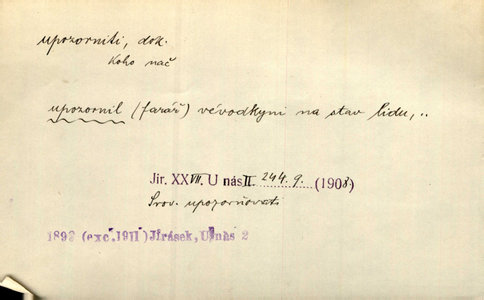 upozorniti, dok.
koho nač
upozornil (farář) vévodkyni na stav lidu,..
Jir. XXVII. U nás II. 244. 9. (1903.)
Srov. upozorňovati
1899 (exc. 1911) Jirásek, U nás 2